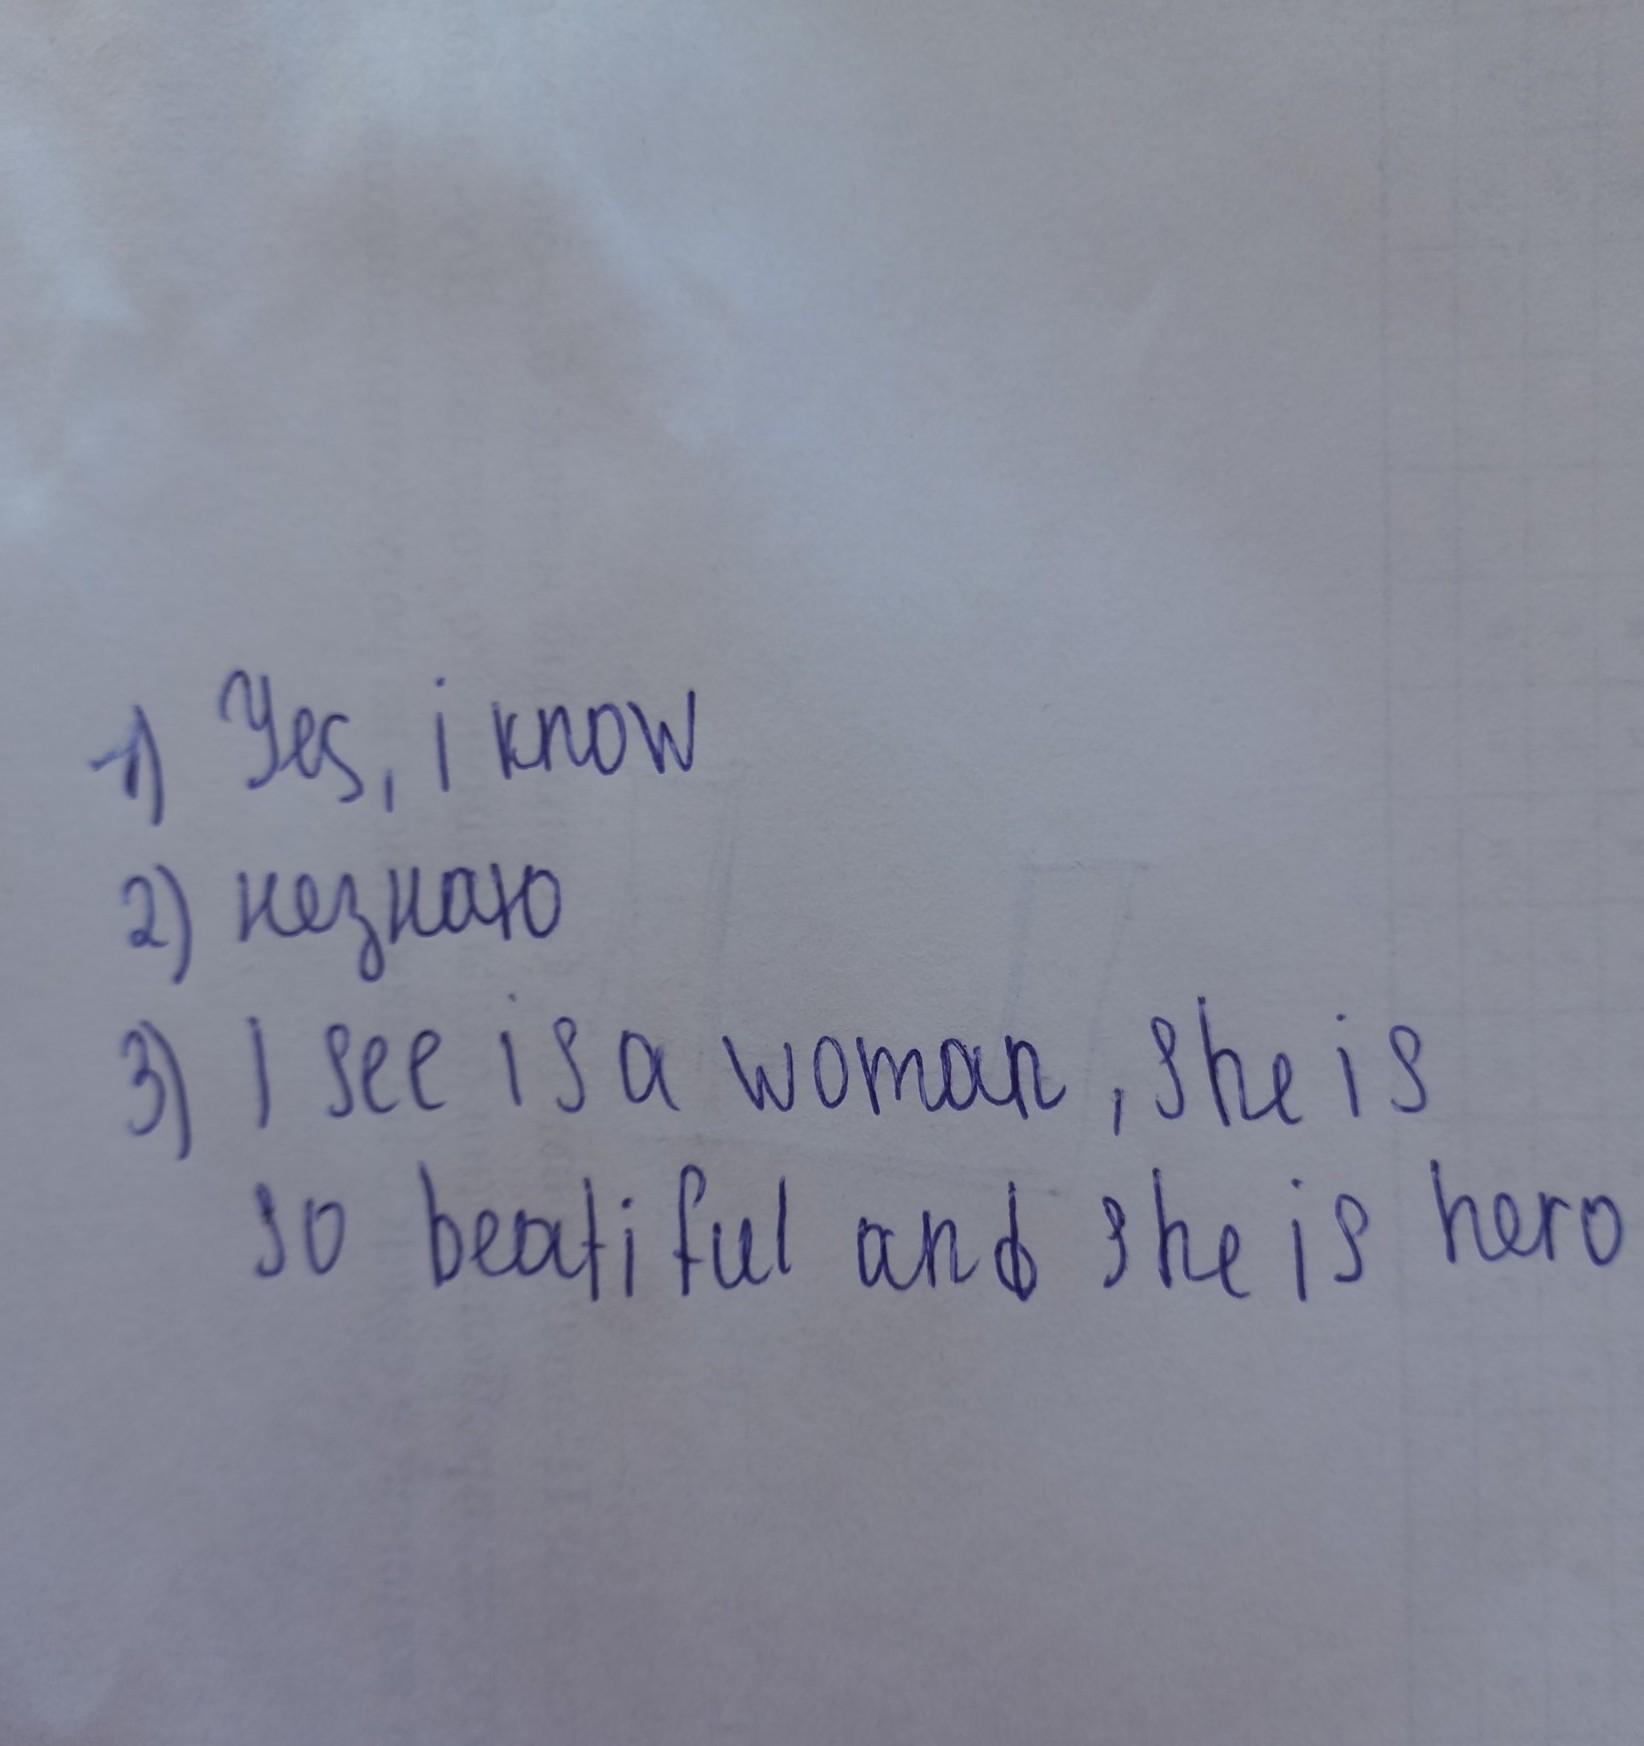 1) Yes, i know
2) незнаю
3) I see is a woman, she is
so beatiful and she is hero